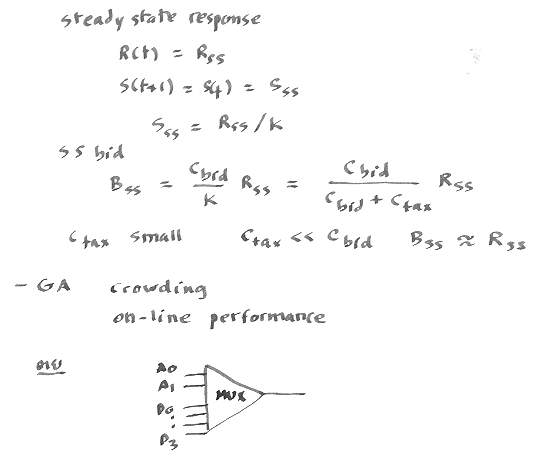 steady state response
R(t) = Rss
S(t+1) = S(t) = Sss
Sss = Rss/K
SS bid
Bss = Cbid/K Rss = Cbid/(Cbid + Ctax) Rss
Ctax small Ctax << Cbid Bss ≈ Rss
- GA crowding
on-line performance
A0
A1
MUX
D0
D3